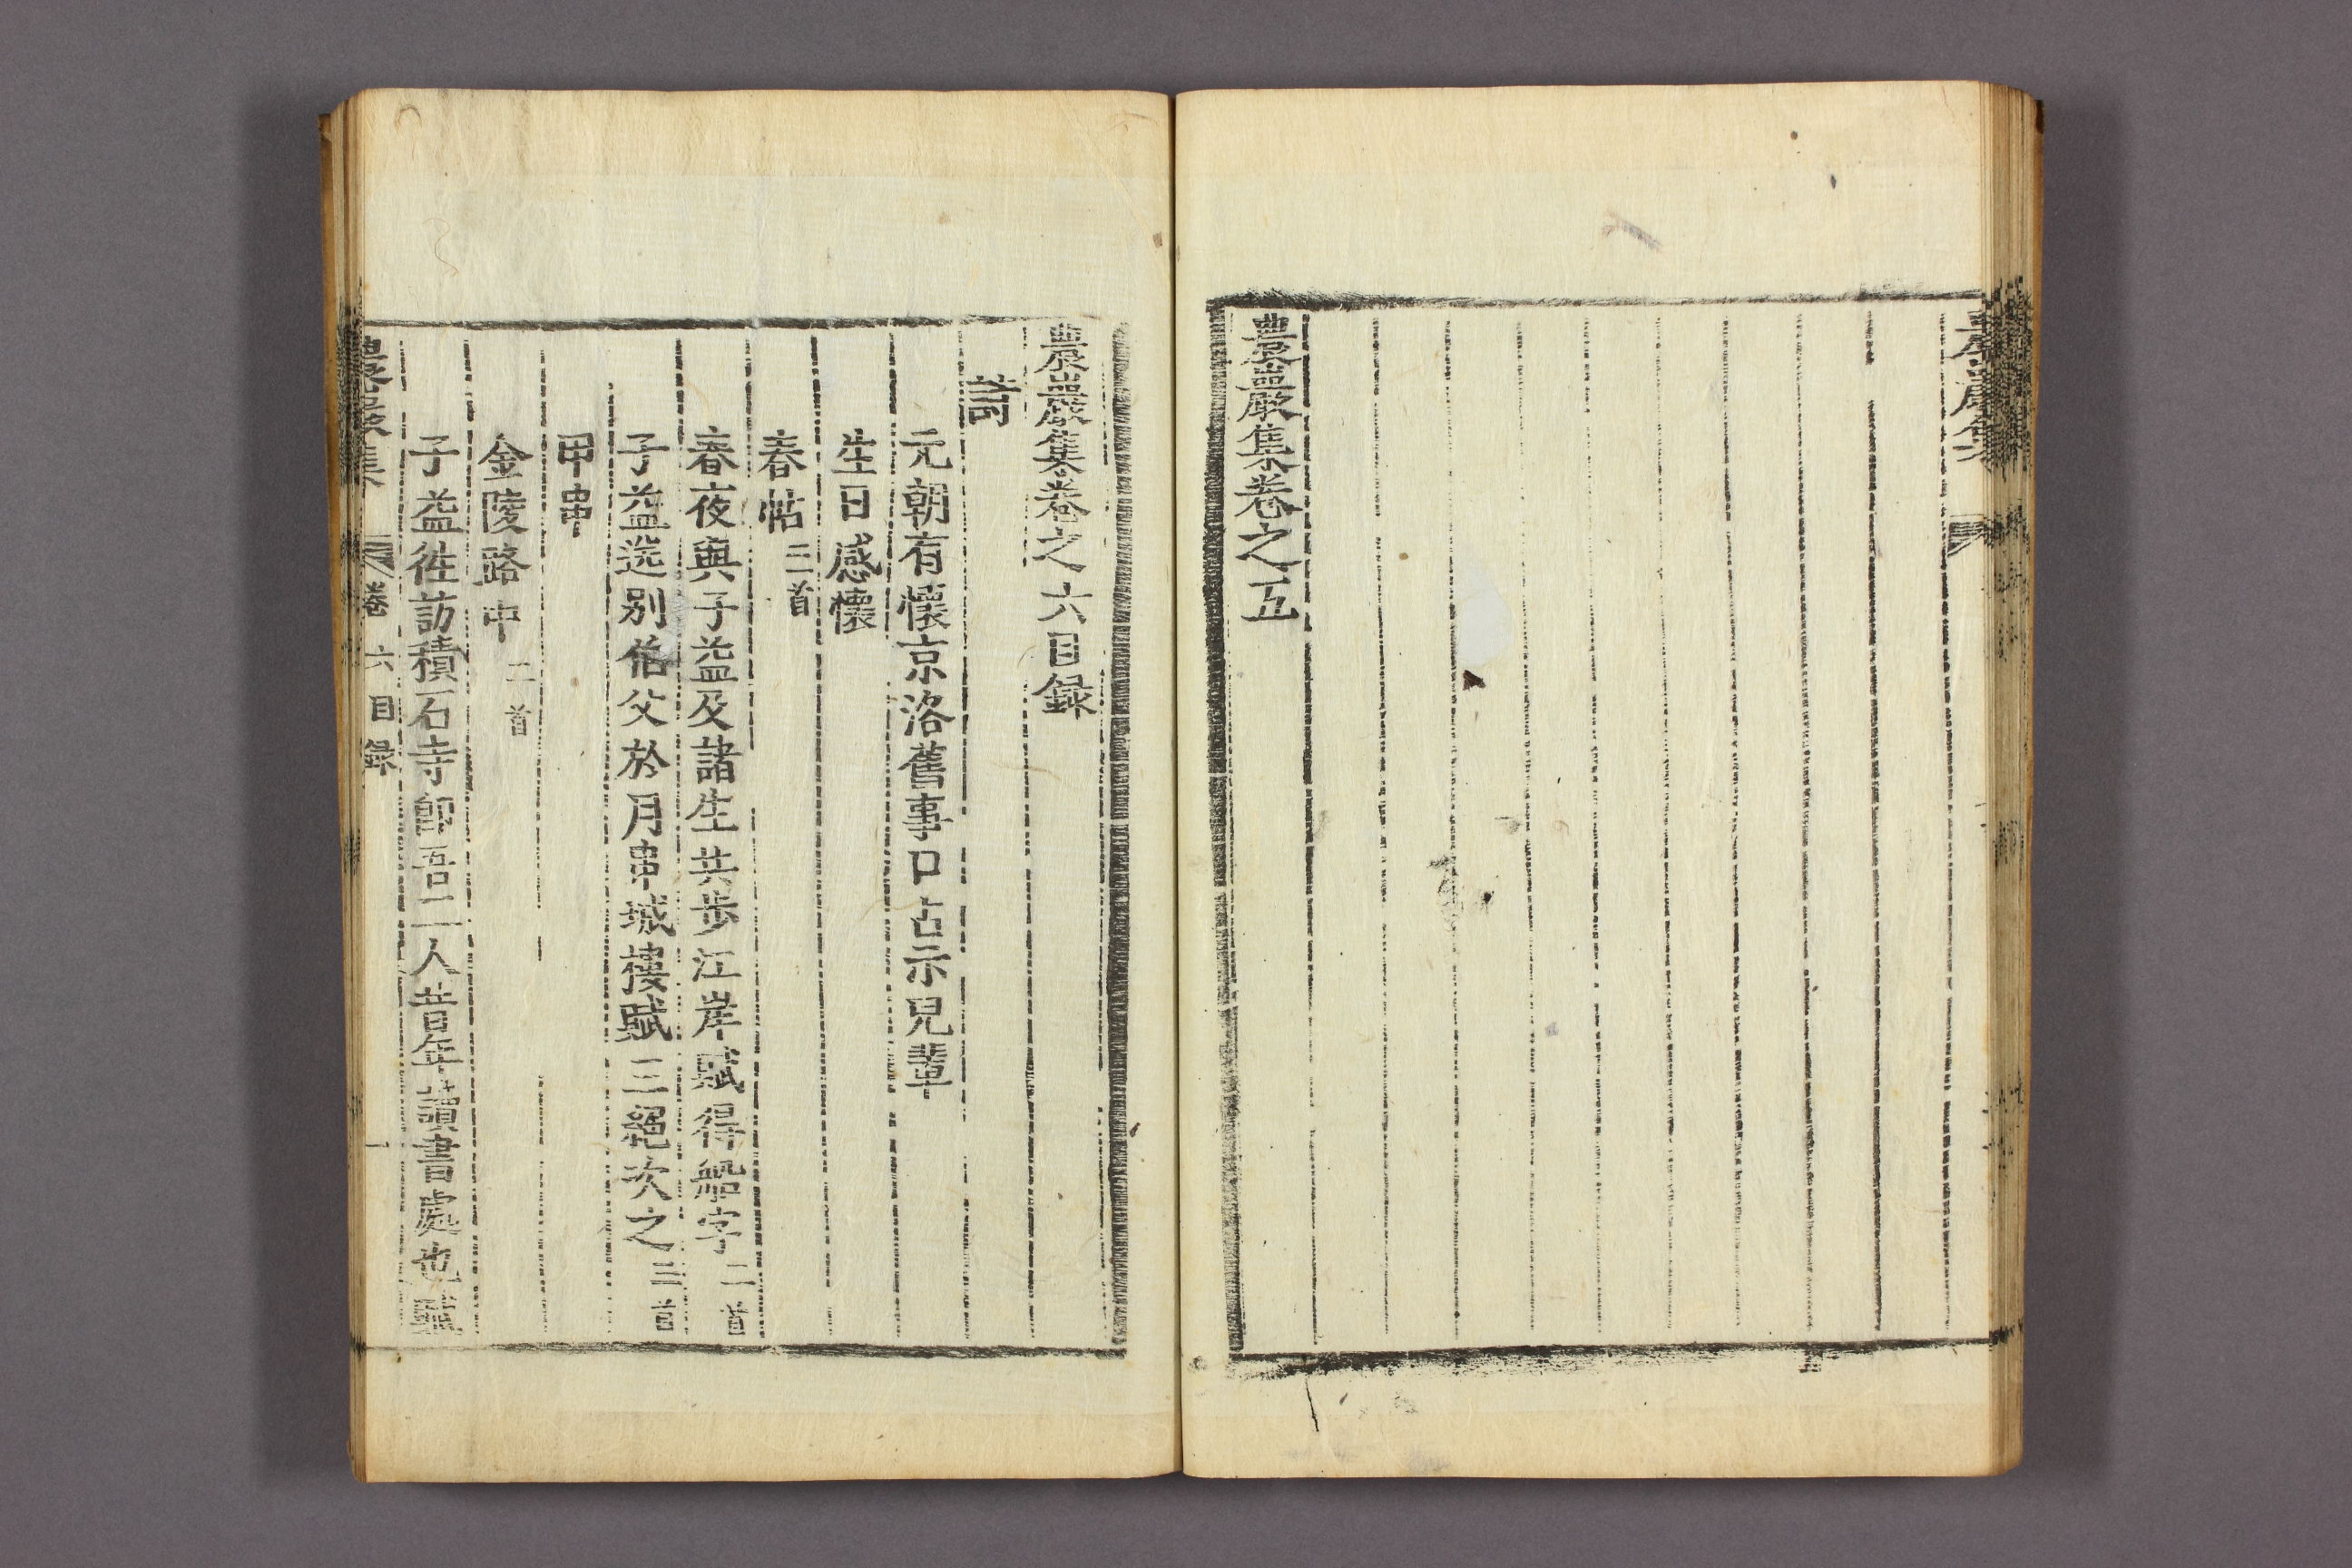 農巖集卷之五
農巖集卷之六目録
詩
元朝有懷京洛舊事口占示兒輩
生日感懷
春帖三首
春夜與子益及諸生共步江岸賦得船字二首
子益送別伯父於月串城樓賦三絕次之三首
甲串
金陵路中二首
子益徃訪積石寺卽吾二人昔年讀書處也
農巖集 卷六目録 一